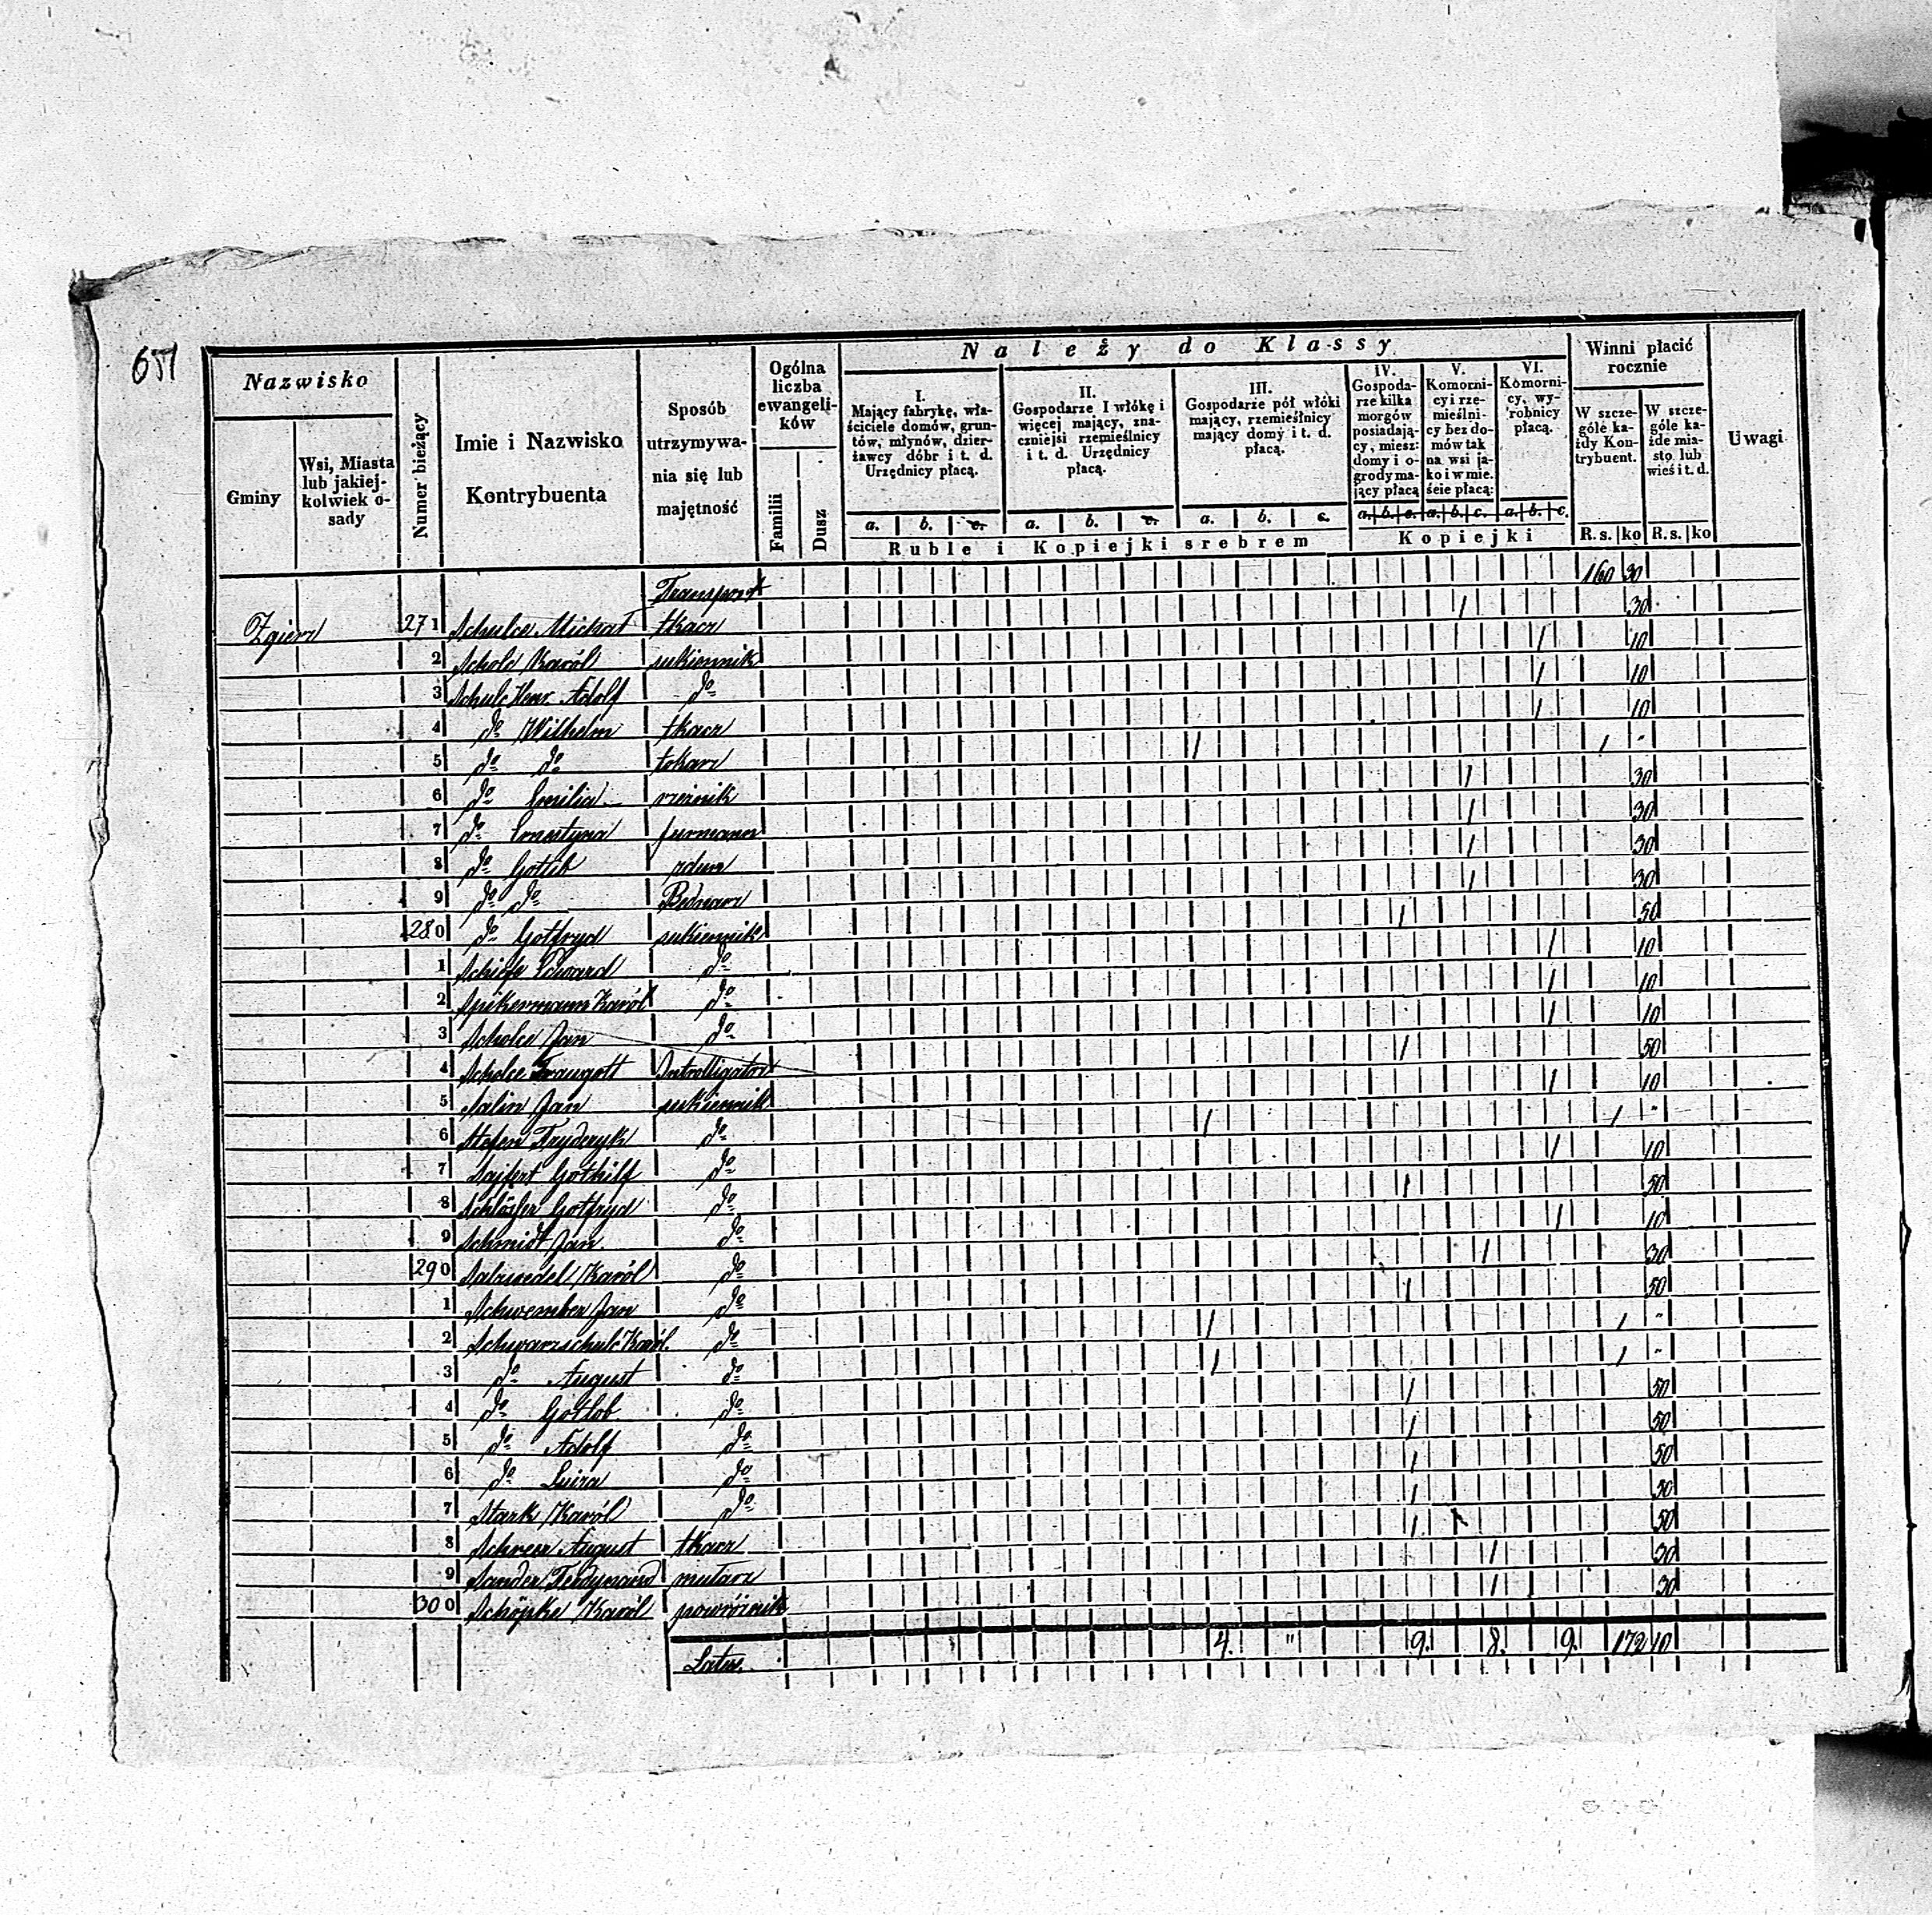 651
Należy do Klassy
Nazwisko
Gminy
Wsi, Miasta lub jakiej-kolwiek o-sady
Numer bieżący
Imie i Nazwisko Kontrybuenta
Sposób utrzymywa-nia się lub majętność
Ogólna liczba ewangeli-ków
Familii
Dusz
I. Mający fabrykę, wła-ściciele domów, grun-tów, młynów, dzier-żawcy dóbr i t. d. Urzędnicy płacą.
II. Gospodarze I włókę i więcej mający, zna-czniejsi rzemieślnicy i t. d. Urzędnicy płacą.
III. Gospodarze pół włóki mający, rzemieślnicy mający domy i t. d. płacą.
IV. Gospoda-rze kilka morgów posiadają-cy, miesz: domy i o-grody ma-jący płacą
V. Komorni-cy i rze-mieślni-cy bez do-mów tak na wsi ja-ko i w mie. ście płacą:
VI. Komorni-cy, wy-robnicy płacą.
Winni płacić rocznie
W szcze-góle ka-żdy Kon-trybuent.
W szcze-góle ka-żde mia-sto lub wieś i t. d.
Uwagi
a. b. c. a. b. c. a. b. c. a. b. c. a. b. c. a. b. c.
Ruble i Kopiejki srebrem Kopiejki R.s. ko R.s. ko
Transport 160 30
Zgierz 271 Schulce Michał tkacz / 30
2 Scholc Karól sukiennik / 10
3 Schulc Henr. Adolf do / 10
4 do Wilhelm tkacz / 10
5 do do tokarz / / "
6 do Emilia rzeźnik / 30
7 do Ernestyna furmann / 30
8 do Gotlib zdun / 30
9 do do Bednarz / 30
280 do Gotfryd sukiennik / 50
1 Edward do / 10
2 Spikermann Karól do / 10
3 Scholce Jan do / 10
4 Scholce Traugott Introlligator / 50
5 Salin Jan sukiennik / 10
6 Stefen Fryderyk do / / "
7 Sajfert Gothilf do / 10
8 Schlösser Gotfryd do / 50
9 Schmidt Jan do / 10
290 Salzwedel Karól do / 30
1 Schwember Jan do / 50
2 Schwarzschulc Karól do / / "
3 do August do / / "
4 do Gotlob do / 50
5 do Adolf do / 50
6 do Luiza do / 50
7 Stark Karól do / 50
8 August tkacz / 50
9 Sander Ferdynand mularz / 30
300 Schöpke Karól powróźnik / 30
Latus 4. " 9. 8. 9. 172 10